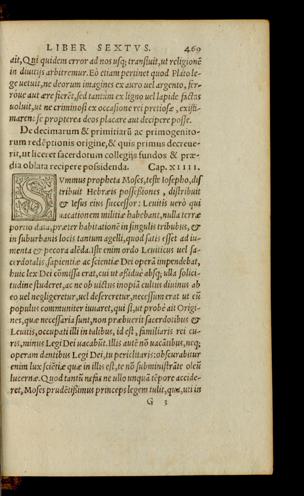 LIBER SEXTVS. 469
ait, Qui quidem error ad nos usq; transiuit, ut religionē
in diuitijs arbitremur. Eò etiam pertinet quod Plato le-
ge uetuit, ne deorum imagines ex auro uel argento, fer-
roue aut ære fierēt, sed tantùm ex ligno uel lapide factas
uoluit, ut ne criminosi ex occasione rei pretiosæ, existi-
maren: se propterea deos placare aut decipere posse.
De decimarum & primitiarū ac primogenito-
rum redēptionis origine, & quis primus decreue-
rit, ut liceret sacerdotum collegijs fundos & præ-
dia oblata recipere possidenda. Cap. XIIII.
SVmmus propheta Moses, teste Iosepho, di-
stribuit Hebræis possessiones, distribuit
& Iesus eius successor: Leuitis uerò qui
uacationem militiæ habebant, nulla terræ
portio data, præter habitationē in singulis tribubus, &
in suburbanis locis tantum agelli, quod satis esset ad iu-
menta & pecora alēda. Istē enim ordo Leuiticus uel sa-
cerdotalis sapientiæ ac scientiæ Dei operā impendebat,
huic lex Dei cōmissa erat, cui ut assiduè absq; ulla solici-
tudine studeret, ac ne ob uictus inopiā cultus diuinus ab
eo uel negligeretur, uel desereretur, necessum erat ut eū
populus communiter iuuaret, qui si, ut probè ait Origi-
nes, quæ necessaria sunt, non præbuerit sacerdotibus &
Leuitis, occupati illi in talibus, id est, familiaris rei cu-
ris, minus Legi Dei uacabūt. Illis autē nō uacātibus, neq;
operam dentibus Legi Dei, tu periclitaris: obscurabitur
enim lux sciētiæ quæ in illis est, te nō subministrāte oleū
lucernæ. Quod tantū nefas ne ullo unquā tēpore accide-
ret, Moses prudētissimus princeps legem tulit, quæ, uti in
G 3